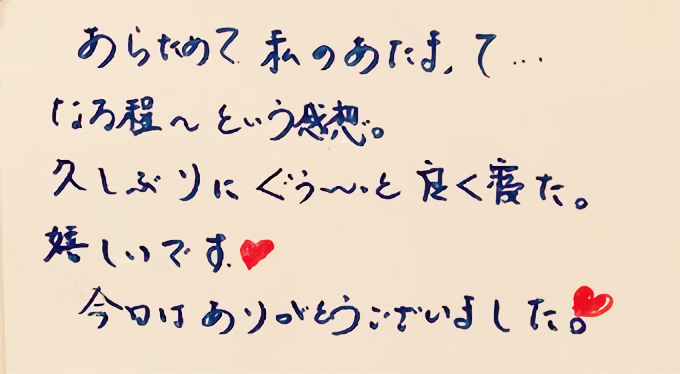 あらためて 私のあたま、て…
なる程〜という感想。
久しぶりに ぐぅ〜っと 良く寝た。
嬉しいです♥
今日は ありがとうございました。♥